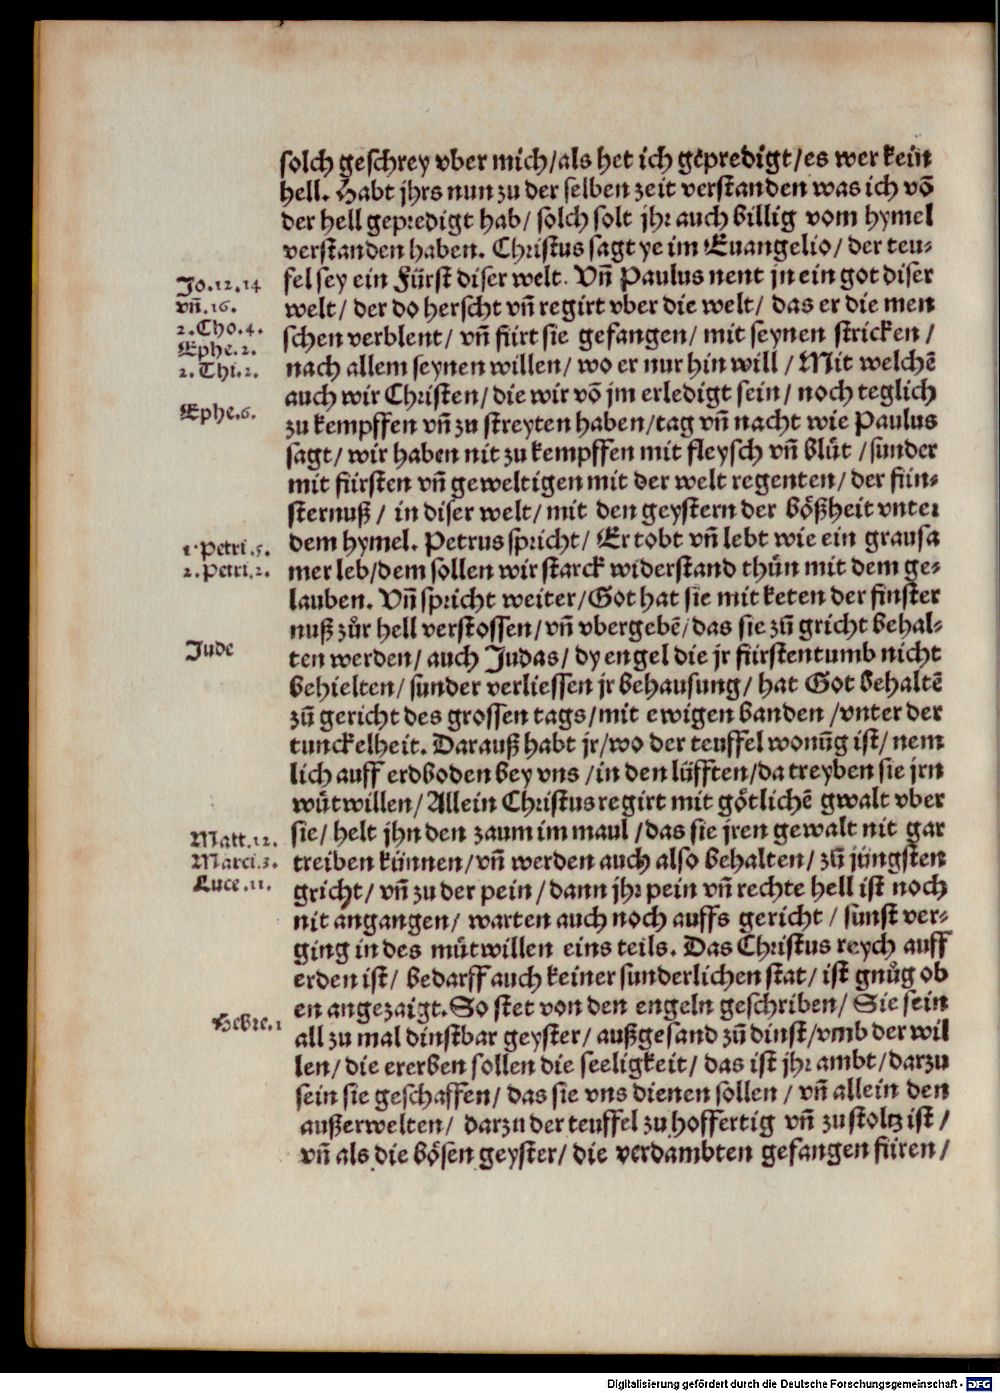 solch geschrey vber mich/als het ich gepredigt/es wer kein
hell. Habt jhrs nun zu der selben zeit verstanden was ich võ
der hell gepredigt hab/ solch solt jhr auch billig vom hymel
verstanden haben. Christus sagt ye im Euangelio/ der teu⸗
Jo.12.14
fel sey ein Fürst diser welt. Vñ Paulus nent jn ein got diser
vñ.16.
welt/ der do herscht vñ regirt vber die welt/ das er die men
2.Cho.4.
schen verblent/ vñ fürt sie gefangen/ mit seynen stricken /
Ephe.2.
2.Thi.2.
nach allem seynen willen/ wo er nur hin will / Mit welchẽ
auch wir Christen/ die wir võ jm erledigt sein/ noch teglich
Ephe.6.
zu kempffen vñ zu streyten haben/tag vñ nacht wie Paulus
sagt/ wir haben nit zu kempffen mit fleysch vñ blůt /sunder
mit fürsten vñ geweltigen mit der welt regenten/ der fün⸗
sternuß / in diser welt/ mit den geystern der bößheit vnter
1.Petri.5.
dem hymel. Petrus spricht/ Er tobt vñ lebt wie ein grausa
2.Petri.2.
mer leb/dem sollen wir starck widerstand thůn mit dem ge⸗
lauben. Vñ spricht weiter/Got hat sie mit keten der finster
nuß zůr hell verstossen/vñ vbergebẽ/das sie zũ gricht behal⸗
Jude
ten werden/ auch Judas/ dy engel die jr fürstentumb nicht
behielten/ sunder verliessen jr behausung/ hat Got behaltẽ
zũ gericht des grossen tags/mit ewigen banden /vnter der
tunckelheit. Darauß habt jr/wo der teuffel wonũg ist/ nem
lich auff erdboden bey vns /in den lüfften/da treyben sie jrn
můtwillen/ Allein Christus regirt mit götlichẽ gwalt vber
Matt.12.
sie/ helt jhn den zaum im maul /das sie jren gewalt nit gar
Marci.3.
treiben künnen/vñ werden auch also behalten/ zũ jüngsten
Luce.11.
gricht/ vñ zu der pein/ dann jhr pein vñ rechte hell ist noch
nit angangen/ warten auch noch auffs gericht / sunst ver⸗
ging in des můtwillen eins teils. Das Christus reych auff
erden ist/ bedarff auch keiner sunderlichen stat/ ist gnůg ob
en angezaigt. So stet von den engeln geschriben/ Sie sein
Hebre.1
all zu mal dinstbar geyster/ außgesand zũ dinst/vmb der wil
len/ die ererben sollen die seeligkeit/ das ist jhr ambt/darzu
sein sie geschaffen/ das sie vns dienen sollen / vñ allein den
außerwelten/ darzu der teuffel zu hoffertig vñ zu stoltz ist /
vñ als die bösen geyster/ die verdambten gefangen füren/
Digitalisierung gefördert durch die Deutsche Forschungsgemeinschaft - DFG